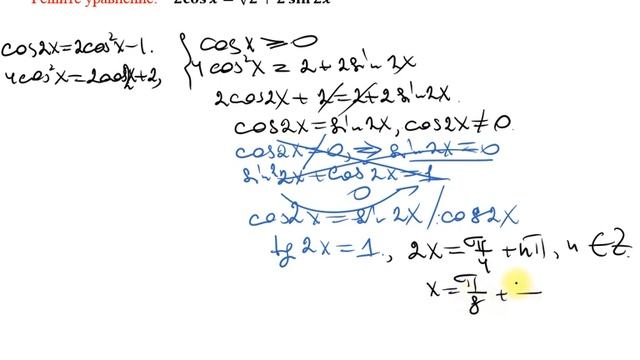 Решите уравнение: 2cos x = √2 + 2 sin 2x
cos2x=2cos²x-1.
4cos²x=2cos2x+2,
{ cosx ≥ 0
4cos²x = 2+2sin2x
2cos2x + 2 = 2 + 2sin2x.
cos2x = sin2x, cos2x ≠ 0.
cos2x = 0, ⇒ sin2x = 0
sin²2x + cos²2x = 1
0
cos2x = sin2x / cos2x
tg 2x = 1, 2x = π/4 + nπ, n ∈ Z.
x = π/8 +